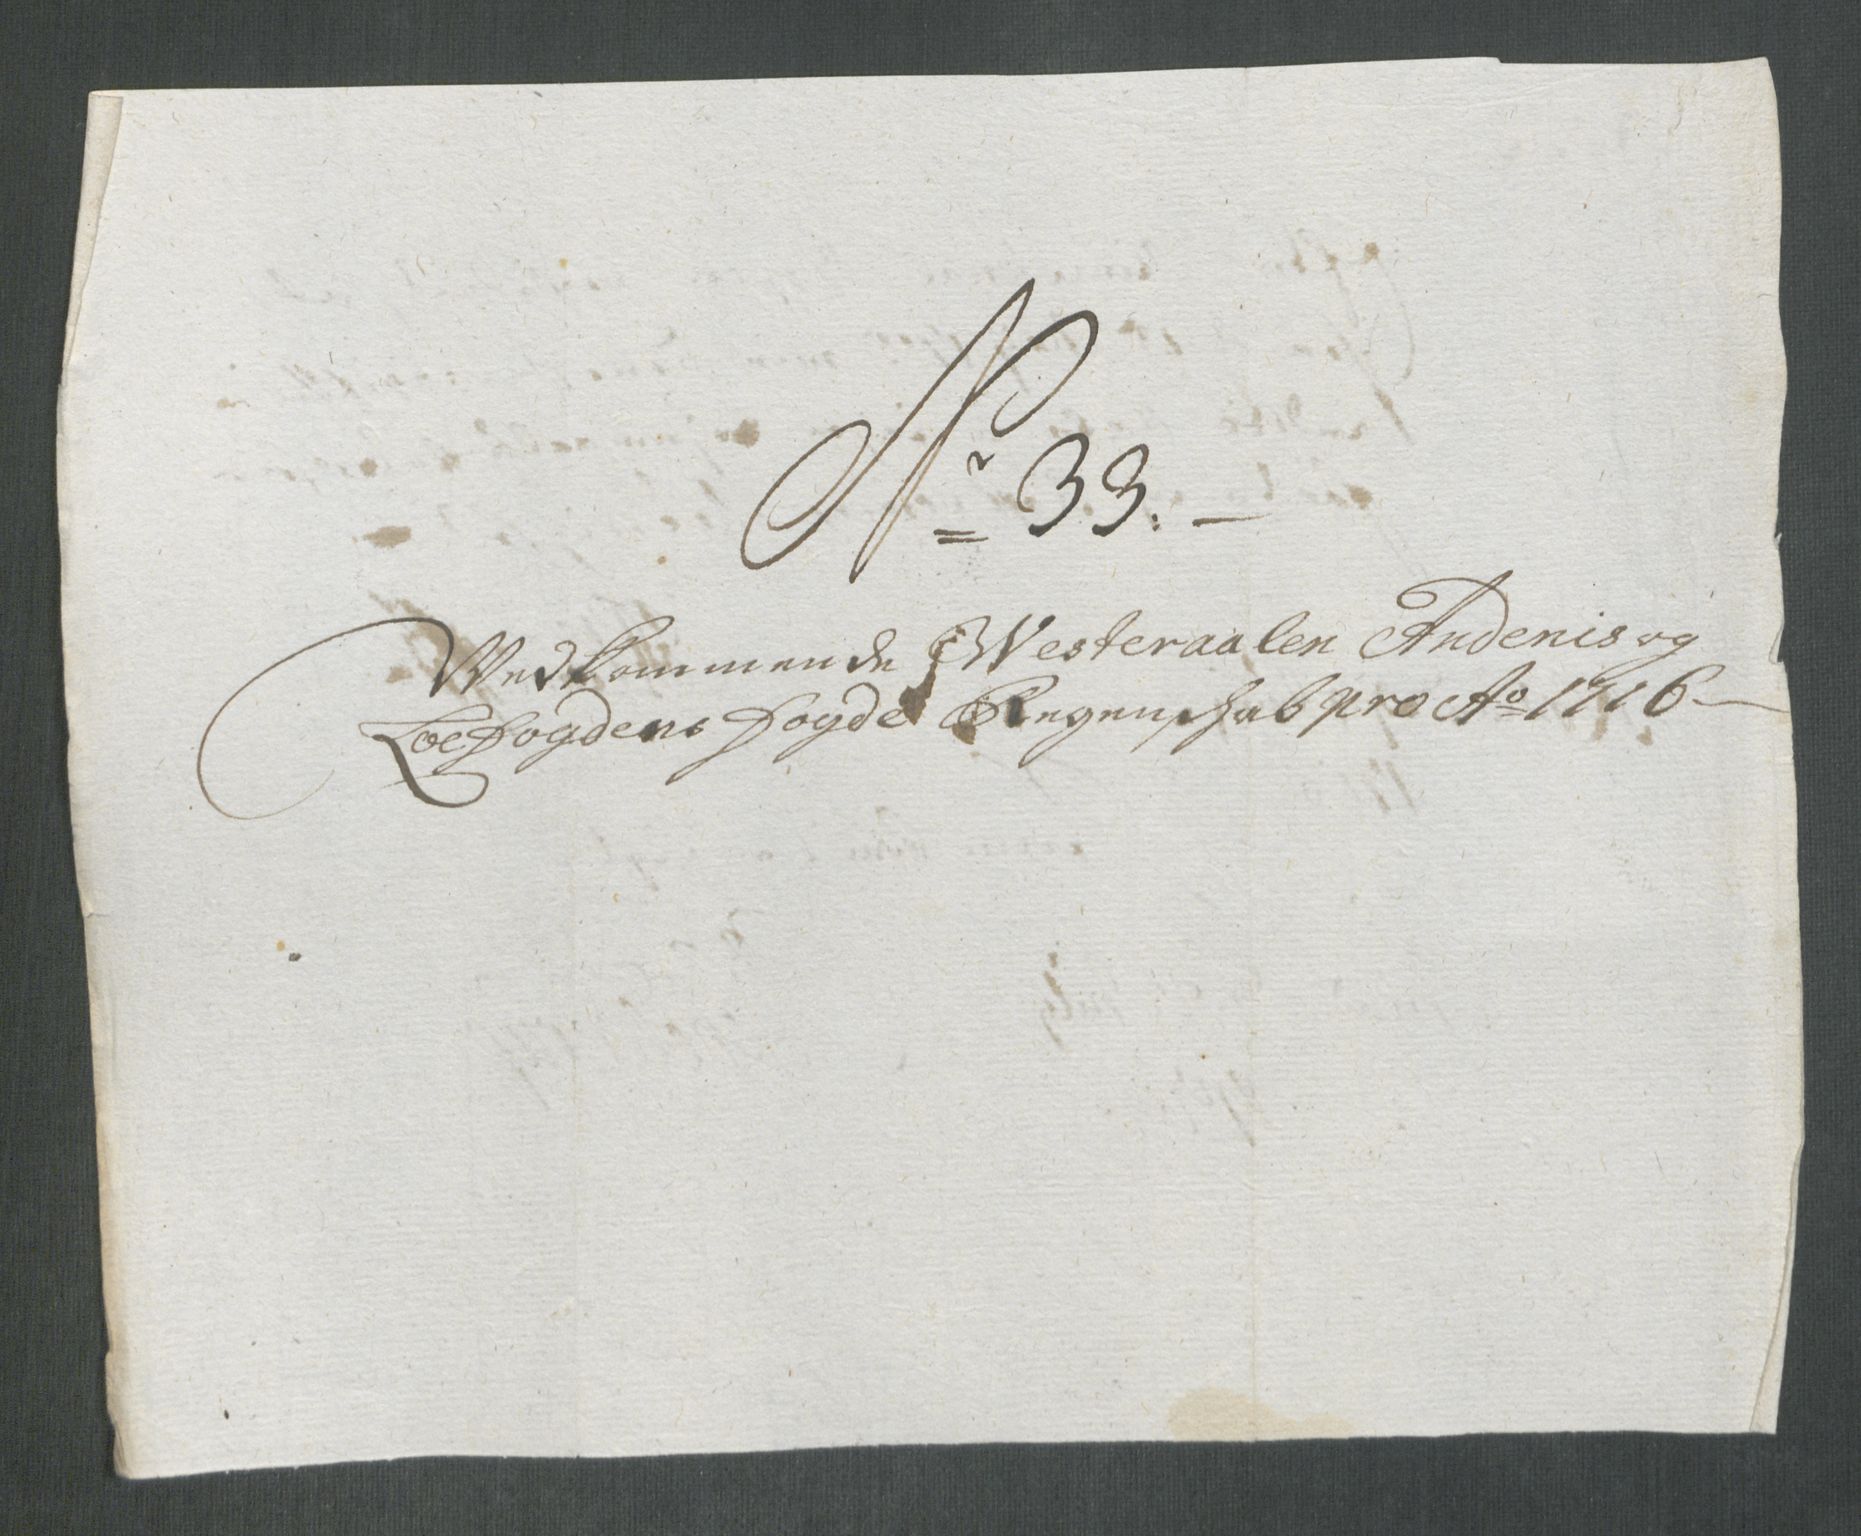 Nr 33. —
Vedkommende Westeraalen Andenis og
Lofogdens fogde Regenskab pro Ao 1716 —